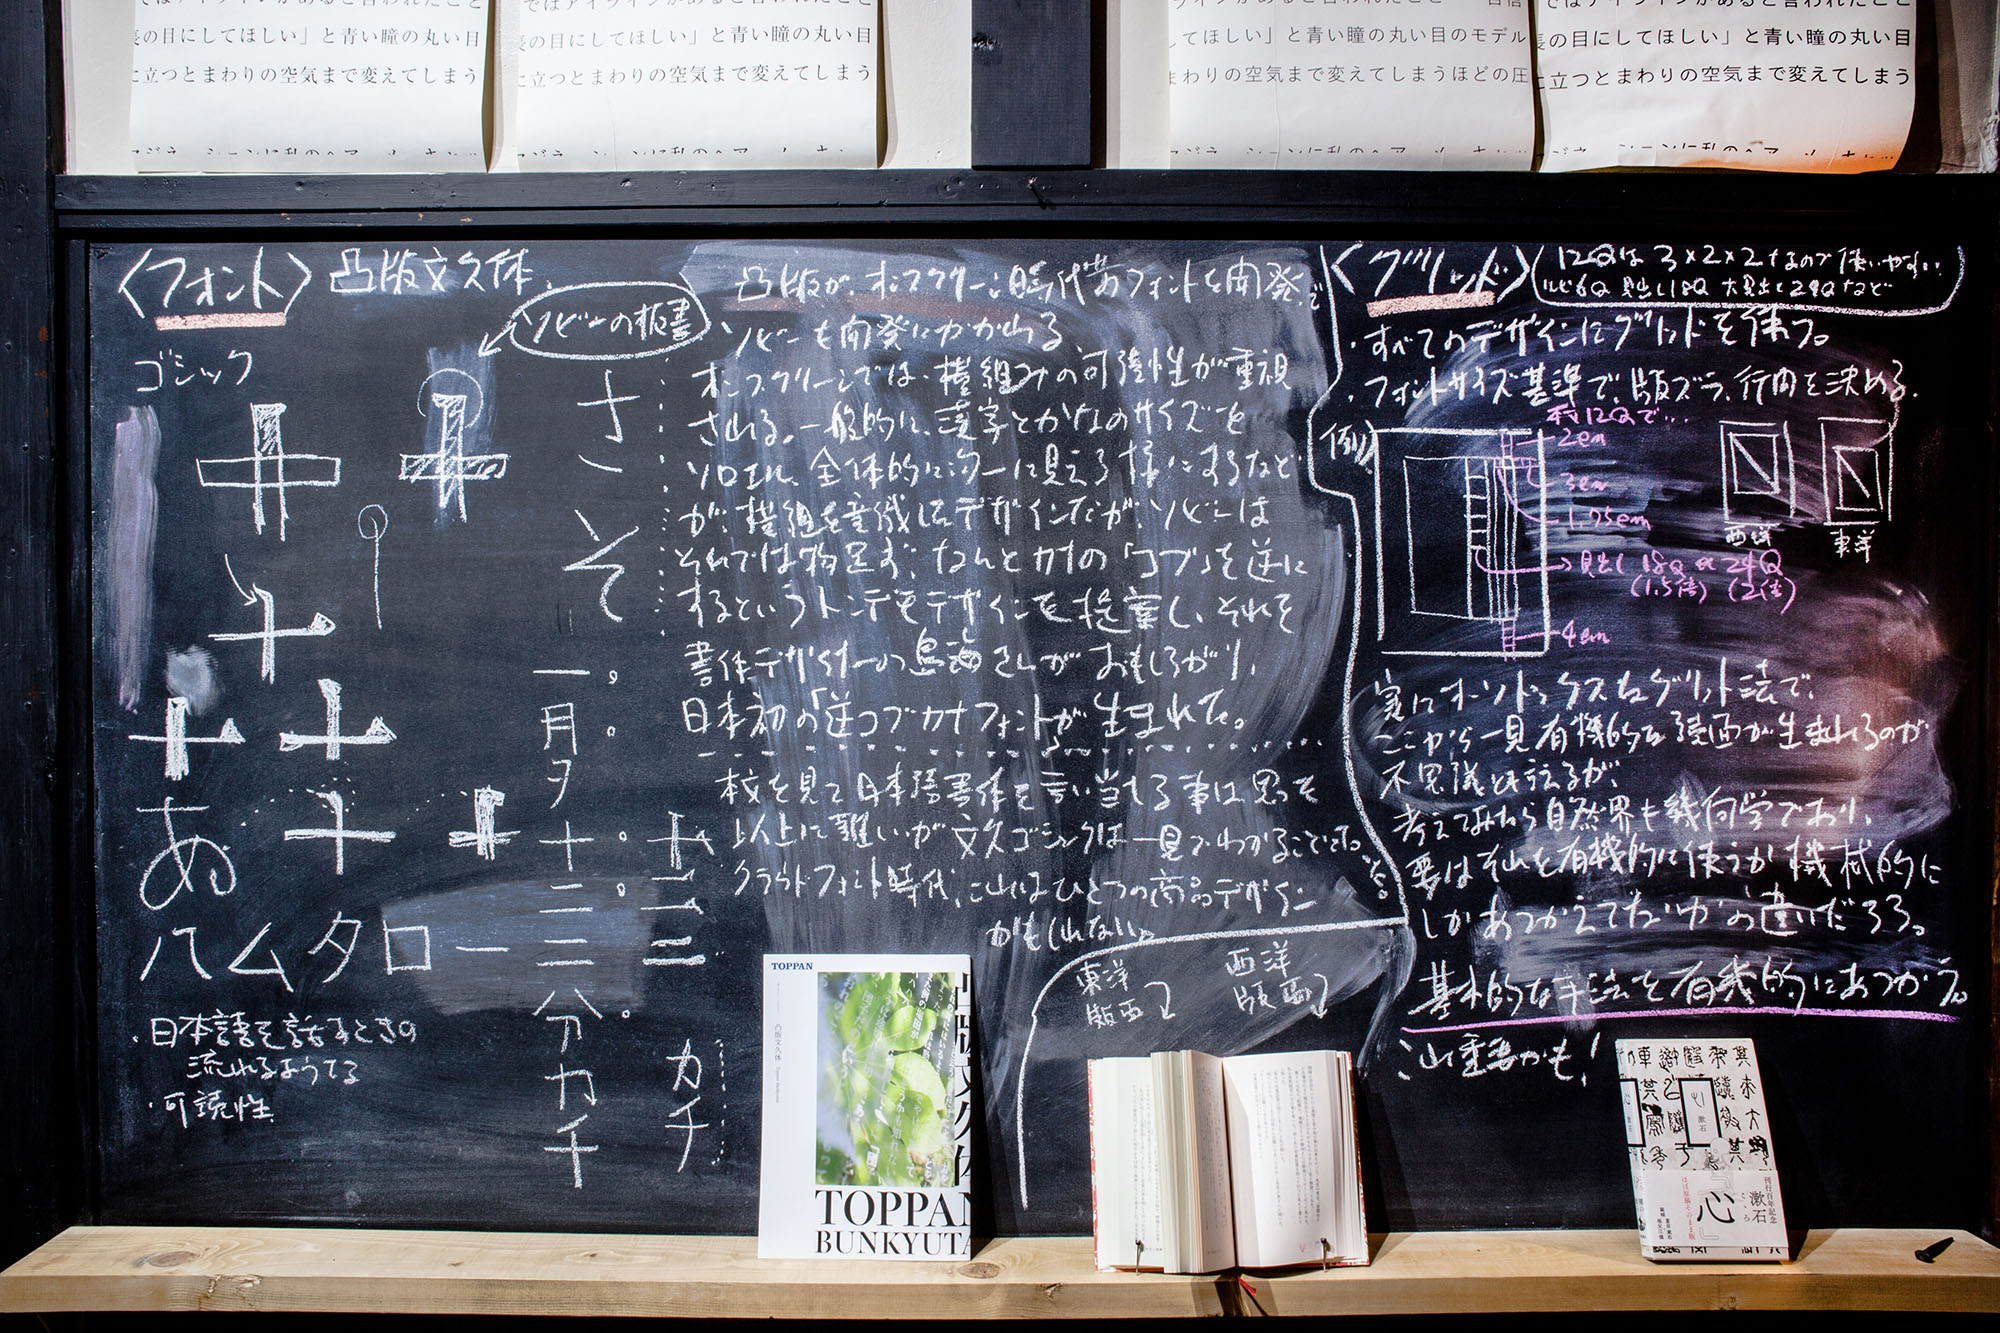 ではアイラインがあると言われたこと
長の目にしてほしい」と青い瞳の丸い目
に立つとまわりの空気まで変えてしまう
ではアイラインがあると言われたこと
長の目にしてほしい」と青い瞳の丸い目
に立つとまわりの空気まで変えてしまう
してほしい」と青い瞳の丸い目のモデル
まわりの空気まで変えてしまうほどの圧
ではアイラインがあると言われたこと
長の目にしてほしい」と青い瞳の丸い目
に立つとまわりの空気まで変えてしまう
〈フォント〉凸版文久体
ソビーの板書
ゴシック
さ
そ
あ
ハムタロー
・日本語を話すときの
流れるようてる
・可読性
一月夕十二三分カチ
十二三
カチ
凸版が、オンスクリーン時代のフォントを開発で
ソビーも開発にかかわる
オンスクリーンでは、横組みの可読性が重視
される。一般的に、漢字とかなのサイズを
ソロエル、全体的に均一に見える様にするなど
が、横組を意識したデザインだが、ソビーは
それでは物足ず、なんとカナの「コブ」を逆に
するというトンデモデザインを提案し、それを
書体デザイナーの鳥海さんがおもしろがり、
日本初の「逆コブカナフォント」が生まれた。
本文を見て日本語書体を言い当てる事は思った
以上に難しいが文久ゴシックは一見でわかることです。
クラウドフォント時代、これはひとつの商品デザイン
かもしれない。
東洋
版面
西洋
版面
〈グリッド〉
12Qは3×2×2なので使いやすい
ルビ6Q 見出し18Q 大見出し24Qなど
・すべてのデザインにグリッドを使う。
・フォントサイズ基準で、版ズラ、行間を決める。
例)
本文12Qで…
2em
3em
1.75em
見出し 18Q or 24Q
(1.5倍) (2倍)
4em
西洋
東洋
実にオーソドックスなグリット法で、
ここから一見有機的な誌面が生まれるのが
不思議と言えるが、
考えてみたら自然界も幾何学であり、
要はそれを有機的に使うか機械的に
しかあつかえてないかの違いだろう。
基本的な手法を有機的にあつかう。
これ重要かも!
TOPPAN
凸版文久体
凸版文久体
TOPPAN
BUNKYUTA
心
漱石
刊行百年記念
漱石
こゝろ
心
ほぼ原稿そのまま版